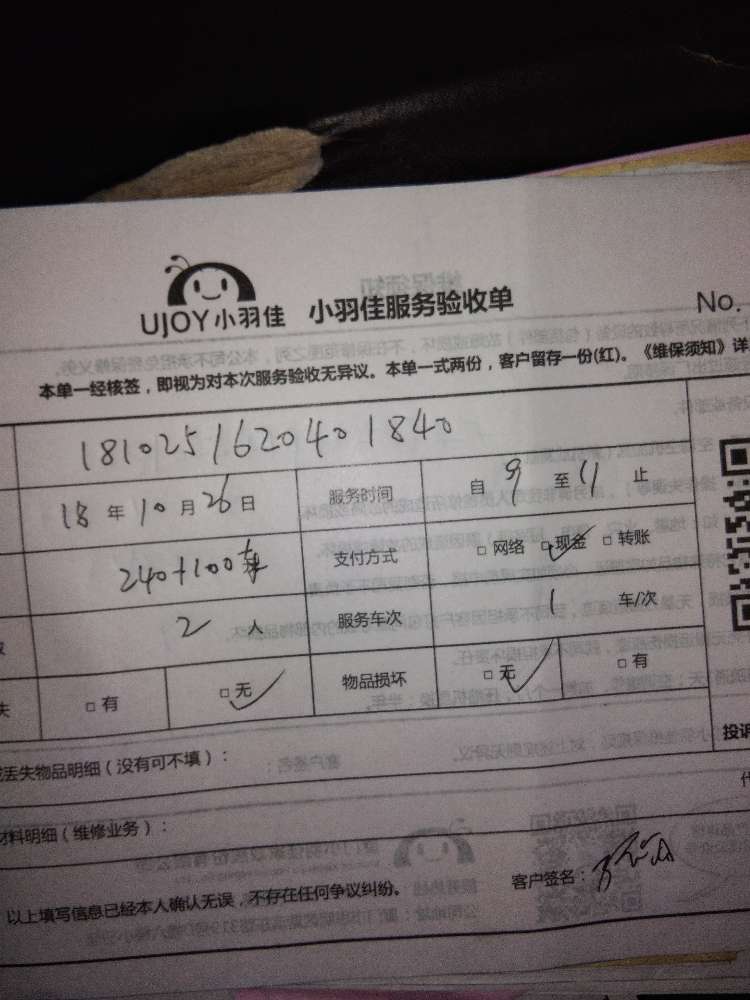 UJOY小羽佳 小羽佳服务验收单
No.
本单一经核签，即视为对本次服务验收无异议。本单一式两份，客户留存一份(红)。《维保须知》详
181025162040 1840
18 年 10 月 26 日 服务时间 自 9 至 11 止
240+100车 支付方式 □ 网络 □ 现金 □ 转账
2 人 服务车次 1 车/次
失 □ 有 □ 无 物品损坏 □ 无 □ 有
丢失物品明细（没有可不填）： 投诉
材料明细（维修业务）：
以上填写信息已经本人确认无误，不存在任何争议纠纷。 客户签名：